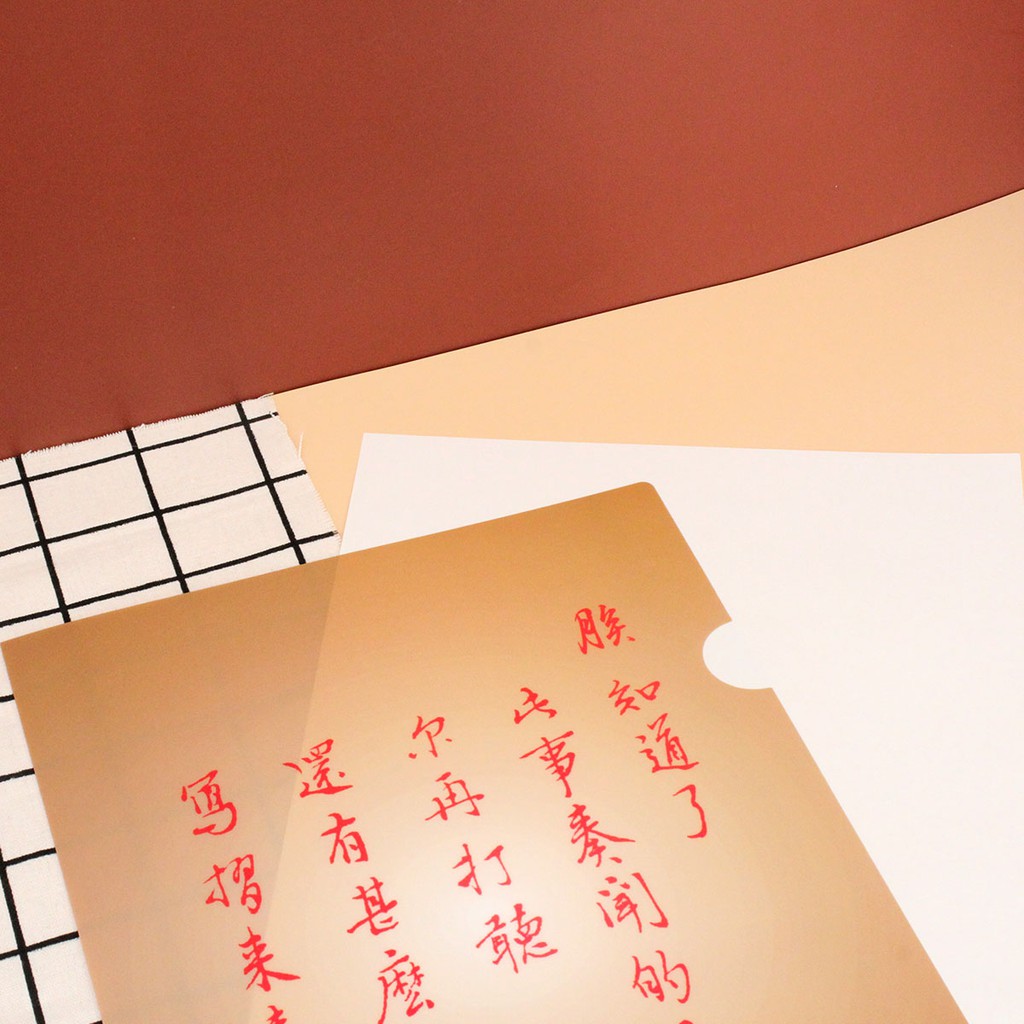 朕知道了
此事奏聞的
尔再打聽
還有甚麼
寫摺来